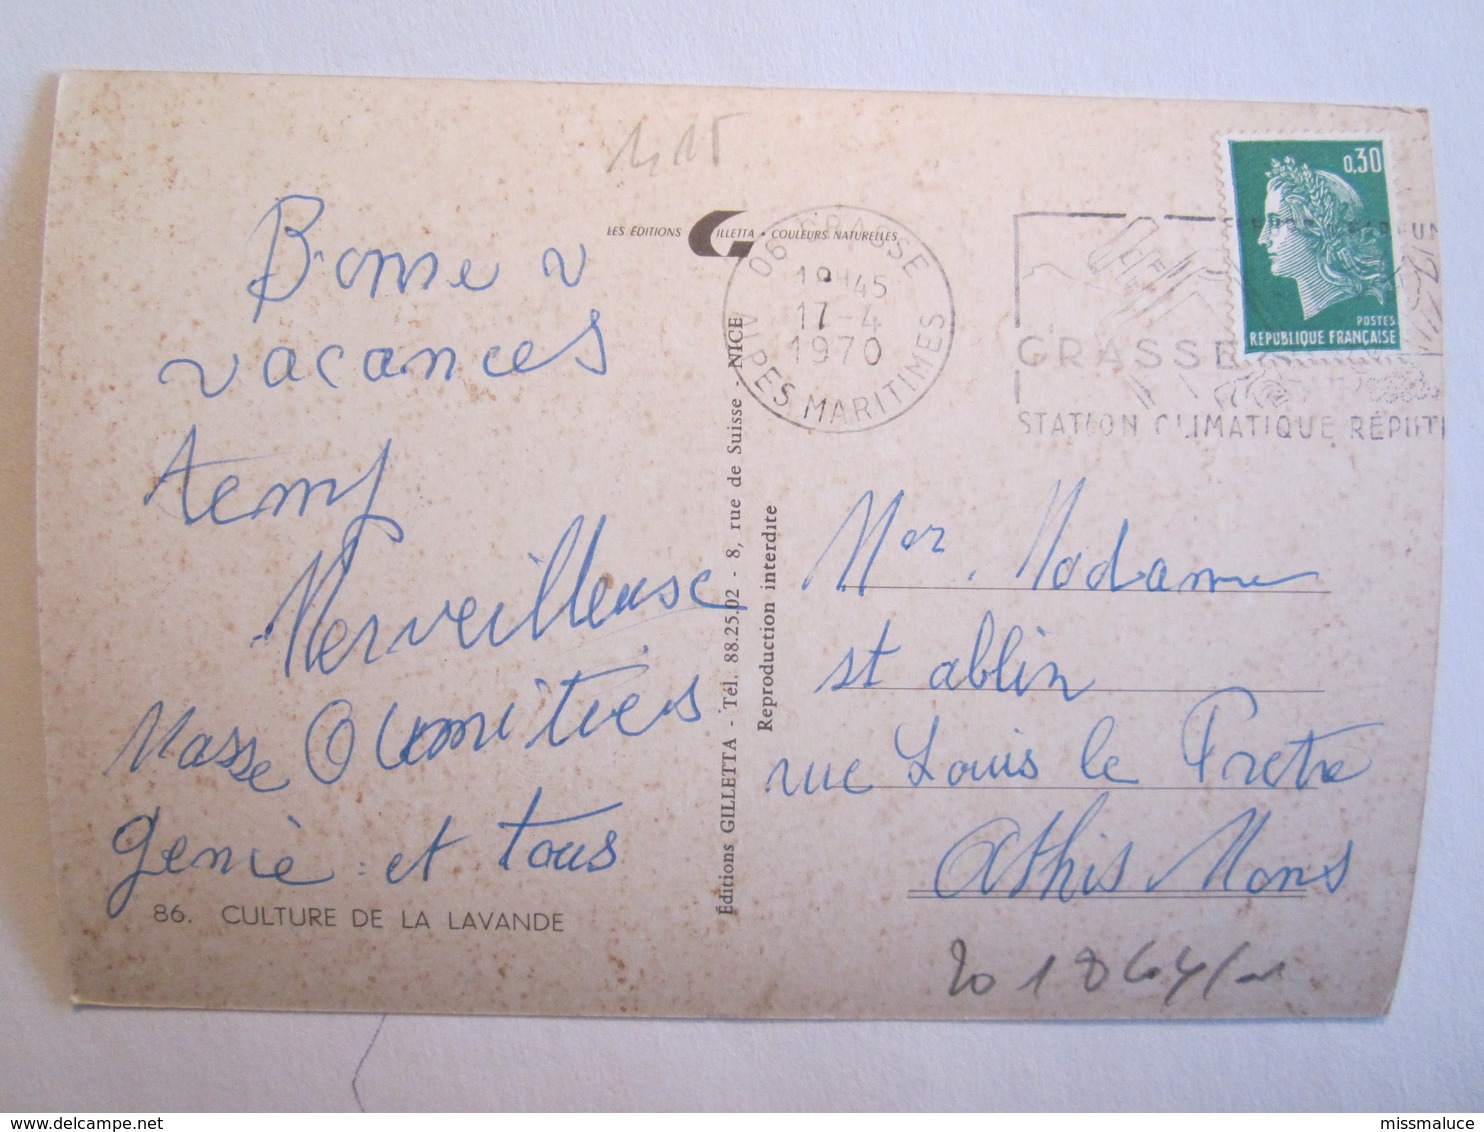 1,15
LES ÉDITIONS GILLETTA • COULEURS NATURELLES
0,30
POSTES
REPUBLIQUE FRANÇAISE
06 GRASSE
18H45
17-4
1970
ALPES MARITIMES
GRASSE
STATION CLIMATIQUE RÉPUT
Bonne v
vacances
temps
Merveilleuse
Masse
genie et tous
86. CULTURE DE LA LAVANDE
Éditions GILLETTA - Tél. 88.25.02 - 8, rue de Suisse - NICE
Reproduction interdite
Mer. Madame
st ablin
rue Louis le Pretre
Athis Mons
missmaluce